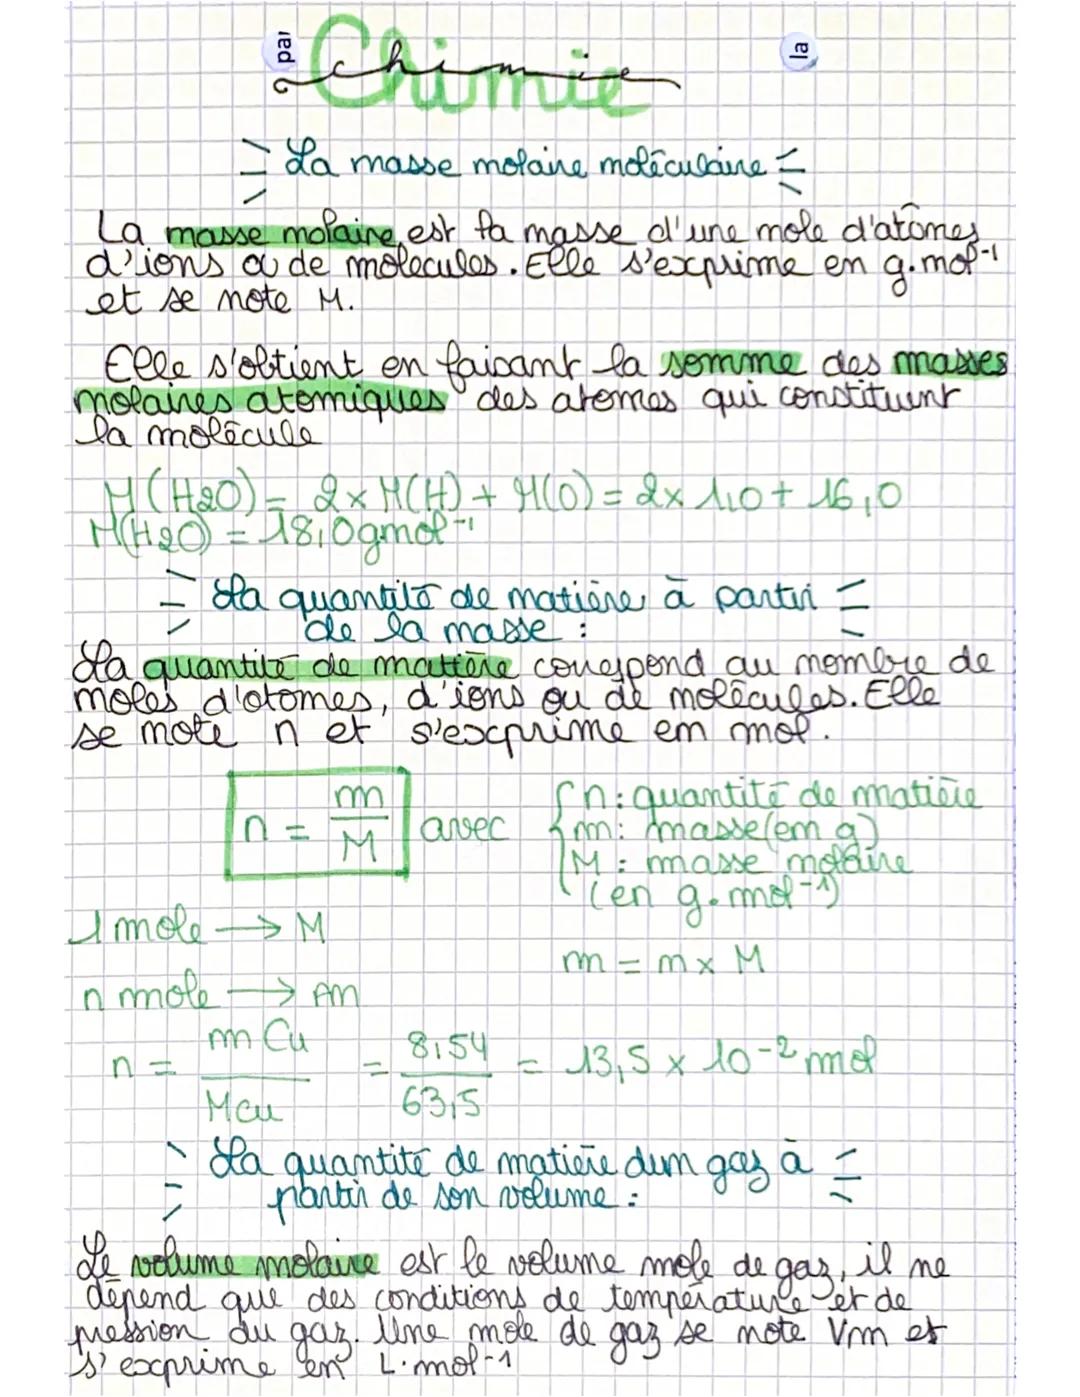 par
la
Chimie
chimie
La masse molaire moléculaire
La masse molaire est la masse d'une mole d'atomes
d'ions ou de molecules. Elle s'exprime en g.mol-1
et se note M.
Elle s'obtient en faisant la somme des masses
molaires atomiques des atomes qui constituent
la molécule
M(H2O) = 2 x M(H) + M(O) = 2 x 1,0 + 16,0
M(H2O) = 18,0gmol-1
La quantité de matière à partir
de la masse :
La quantité de matière correspond au nombre de
moles d'atomes, d'ions ou de molécules. Elle
se note n et s'exprime en mol.
n = m/M avec
n: quantité de matière
m: masse (en g)
M : masse molaire
(en g.mol-1)
1 mole → M
m = n x M
n mole → m
n = m Cu / M Cu = 8,54 / 63,5 = 13,5 x 10-2 mol
La quantité de matière d'un gaz à
partir de son volume :
Le volume molaire est le volume mole de gaz, il ne
dépend que des conditions de température et de
pression du gaz. Une mole de gaz se note Vm et
s'exprime en L.mol-1